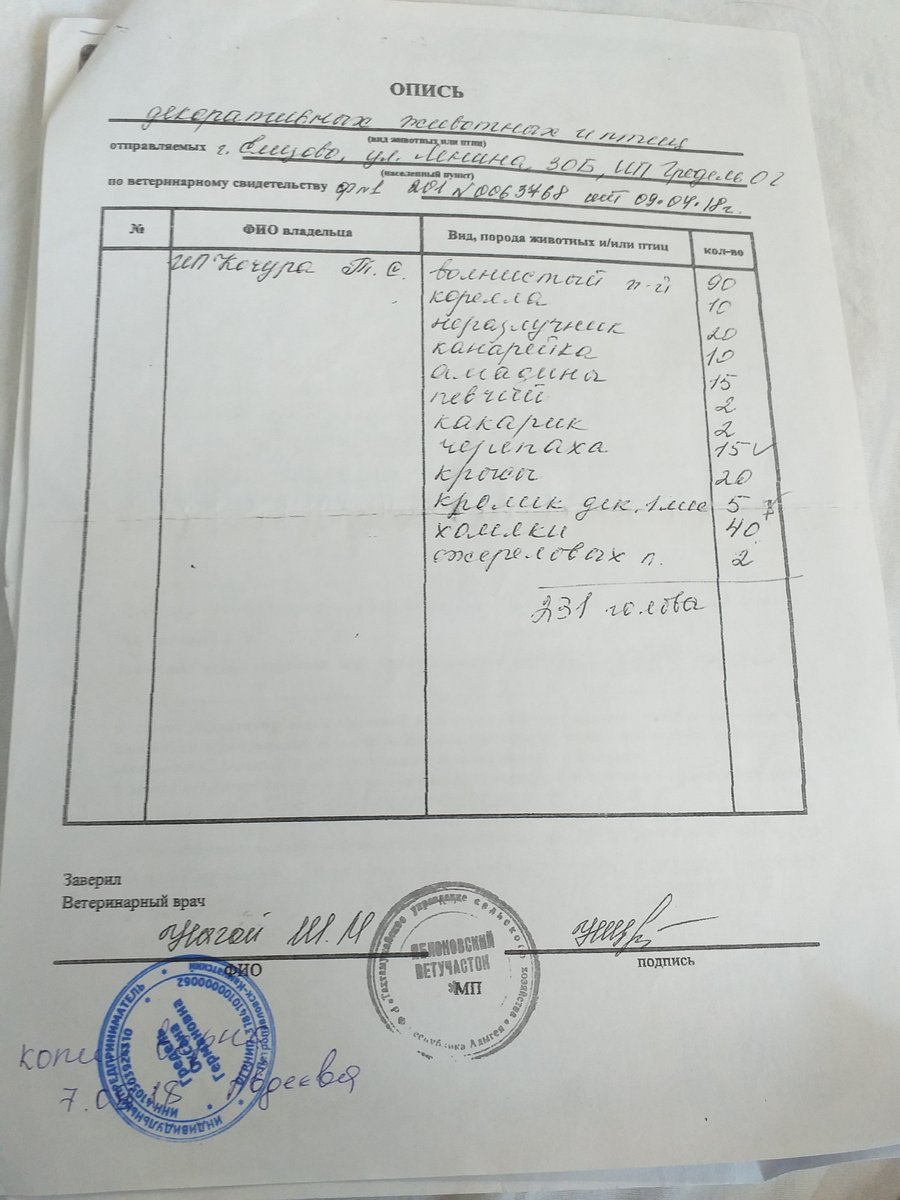 ОПИСЬ
декоративных животных и птиц
(вид животных или птиц)
отправляемых г. Елизово, ул. Ленина, 30Б, ИП Гредель О Г
(населенный пункт)
по ветеринарному свидетельству ф №1 201 № 0063468 от 09.04.18г.
№ ФИО владельца Вид, порода животных и/или птиц кол-во
ИП Кочура Т. С. волнистый п-й 90
корелла 10
неразлучник 20
канарейка 10
амадины 15
певчий 2
какарик 2
черепаха 15
крысы 20
кролик дек. 1 мес 5
хомяки 40
ожереловых п. 2
231 голова
Заверил
Ветеринарный врач
Унагой Ш. М
ФИО
МП
подпись
Тахтамукайское управление сельского хозяйства
Республика Адыгея
ЯБЛОНОВСКИЙ
ВЕТУЧАСТОК
ИНДИВИДУАЛЬНЫЙ ПРЕДПРИНИМАТЕЛЬ
Гредель
Оксана
Германовна
копия верна